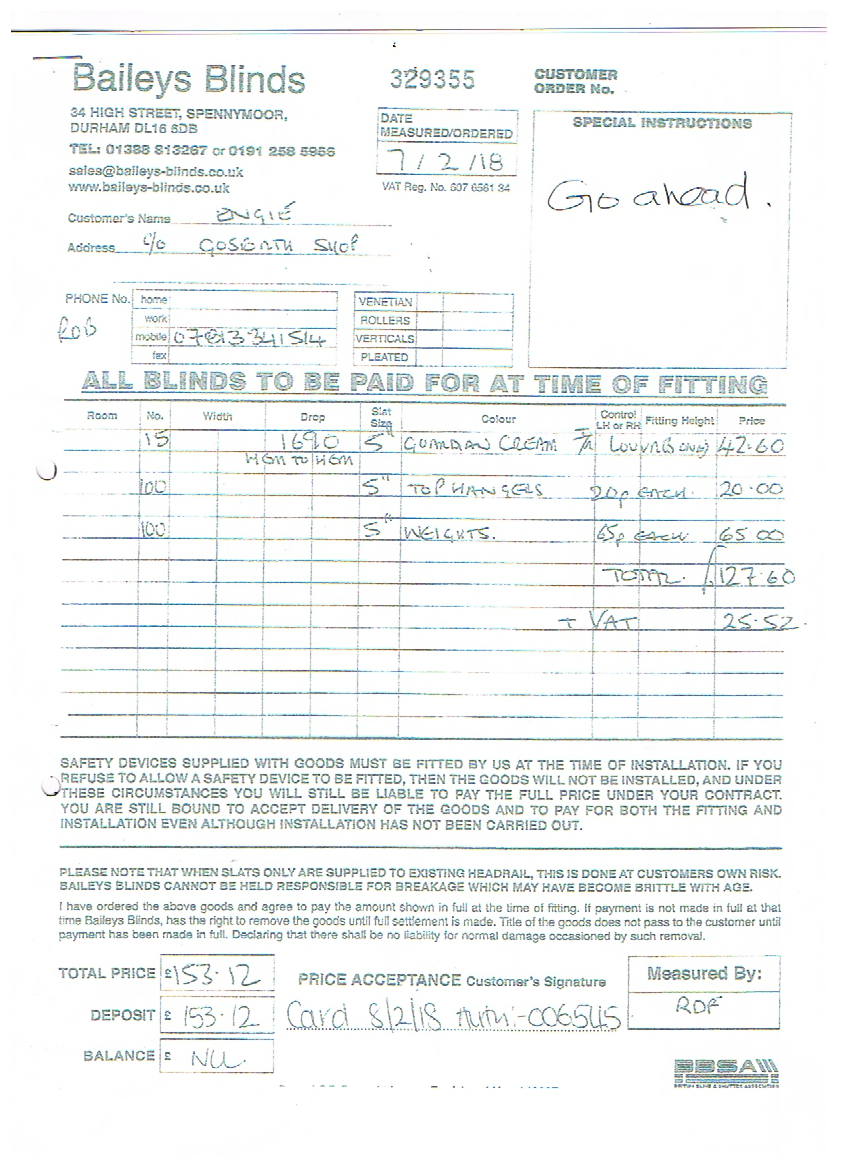 Baileys Blinds
329355
CUSTOMER
ORDER No.
34 HIGH STREET, SPENNYMOOR,
DURHAM DL16 6DB
TEL: 01388 813267 or 0191 258 5956
sales@baileys-blinds.co.uk
www.baileys-blinds.co.uk
DATE
MEASURED/ORDERED
7/2/18
VAT Reg. No. 607 6561 34
SPECIAL INSTRUCTIONS
Go ahead.
Customer's Name ENGIE
Address c/o GOSFORTH SHOP
PHONE No. home
work
ROB
mobile 07813341514
fax
VENETIAN
ROLLERS
VERTICALS
PLEATED
ALL BLINDS TO BE PAID FOR AT TIME OF FITTING
Room No. Width Drop Slat Size Colour Control LH or RH Fitting Height Price
15 1690 5" GUARDIAN CREAM LOUVRES ONLY 42.60
HEM TO HEM
100 5" TOP HANGERS 20p EACH 20.00
100 5" WEIGHTS. 65p EACH 65.00
TOTAL. £127.60
+ VAT 25.52
SAFETY DEVICES SUPPLIED WITH GOODS MUST BE FITTED BY US AT THE TIME OF INSTALLATION. IF YOU
REFUSE TO ALLOW A SAFETY DEVICE TO BE FITTED, THEN THE GOODS WILL NOT BE INSTALLED, AND UNDER
THESE CIRCUMSTANCES YOU WILL STILL BE LIABLE TO PAY THE FULL PRICE UNDER YOUR CONTRACT.
YOU ARE STILL BOUND TO ACCEPT DELIVERY OF THE GOODS AND TO PAY FOR BOTH THE FITTING AND
INSTALLATION EVEN ALTHOUGH INSTALLATION HAS NOT BEEN CARRIED OUT.
PLEASE NOTE THAT WHEN SLATS ONLY ARE SUPPLIED TO EXISTING HEADRAIL, THIS IS DONE AT CUSTOMERS OWN RISK.
BAILEYS BLINDS CANNOT BE HELD RESPONSIBLE FOR BREAKAGE WHICH MAY HAVE BECOME BRITTLE WITH AGE.
I have ordered the above goods and agree to pay the amount shown in full at the time of fitting. If payment is not made in full at that
time Baileys Blinds, has the right to remove the goods until full settlement is made. Title of the goods does not pass to the customer until
payment has been made in full. Declaring that there shall be no liability for normal damage occasioned by such removal.
TOTAL PRICE £153.12
PRICE ACCEPTANCE Customer's Signature
Measured By:
RDF
DEPOSIT £ 153.12
Card 8/2/18 Auth:-006545
BALANCE £ NIL.
BBSA
BRITISH BLIND & SHUTTER ASSOCIATION